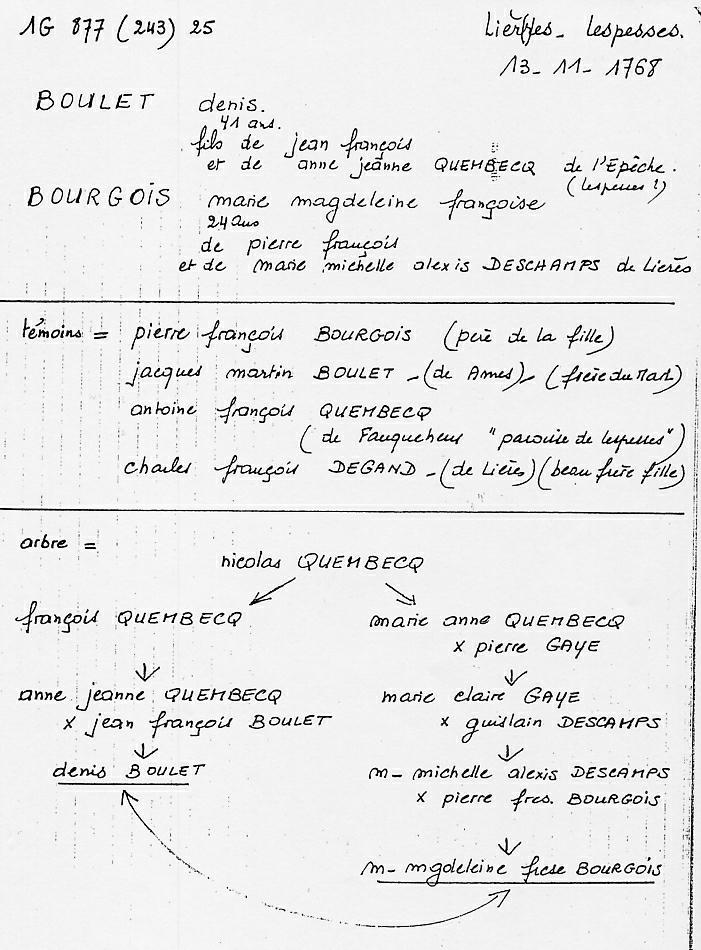 1G 877 (243) 25
Lierres - Lespesses.
13 - 11 - 1768
BOULET denis.
41 ans.
fils de jean françois
et de anne jeanne QUEMBECQ de l'Epêche.
(lespesses ?)
BOURGOIS marie magdeleine françoise
24 ans
de pierre françois
et de marie michelle alexis DESCHAMPS de Lierès
témoins = pierre françois BOURGOIS (père de la fille)
jacques martin BOULET - (de Ames) - (frère du mar.)
antoine françois QUEMBECQ
(de Fauquehem "paroisse de lespesses")
charles françois DEGAND - (de Lières) (beau frère fille)
arbre =
nicolas QUEMBECQ
françois QUEMBECQ
marie anne QUEMBECQ
x pierre GAYE
anne jeanne QUEMBECQ
x jean françois BOULET
marie claire GAYE
x guislain DESCAMPS
denis BOULET
m - michelle alexis DESCAMPS
x pierre fres. BOURGOIS
m - mgdeleine frese BOURGOIS